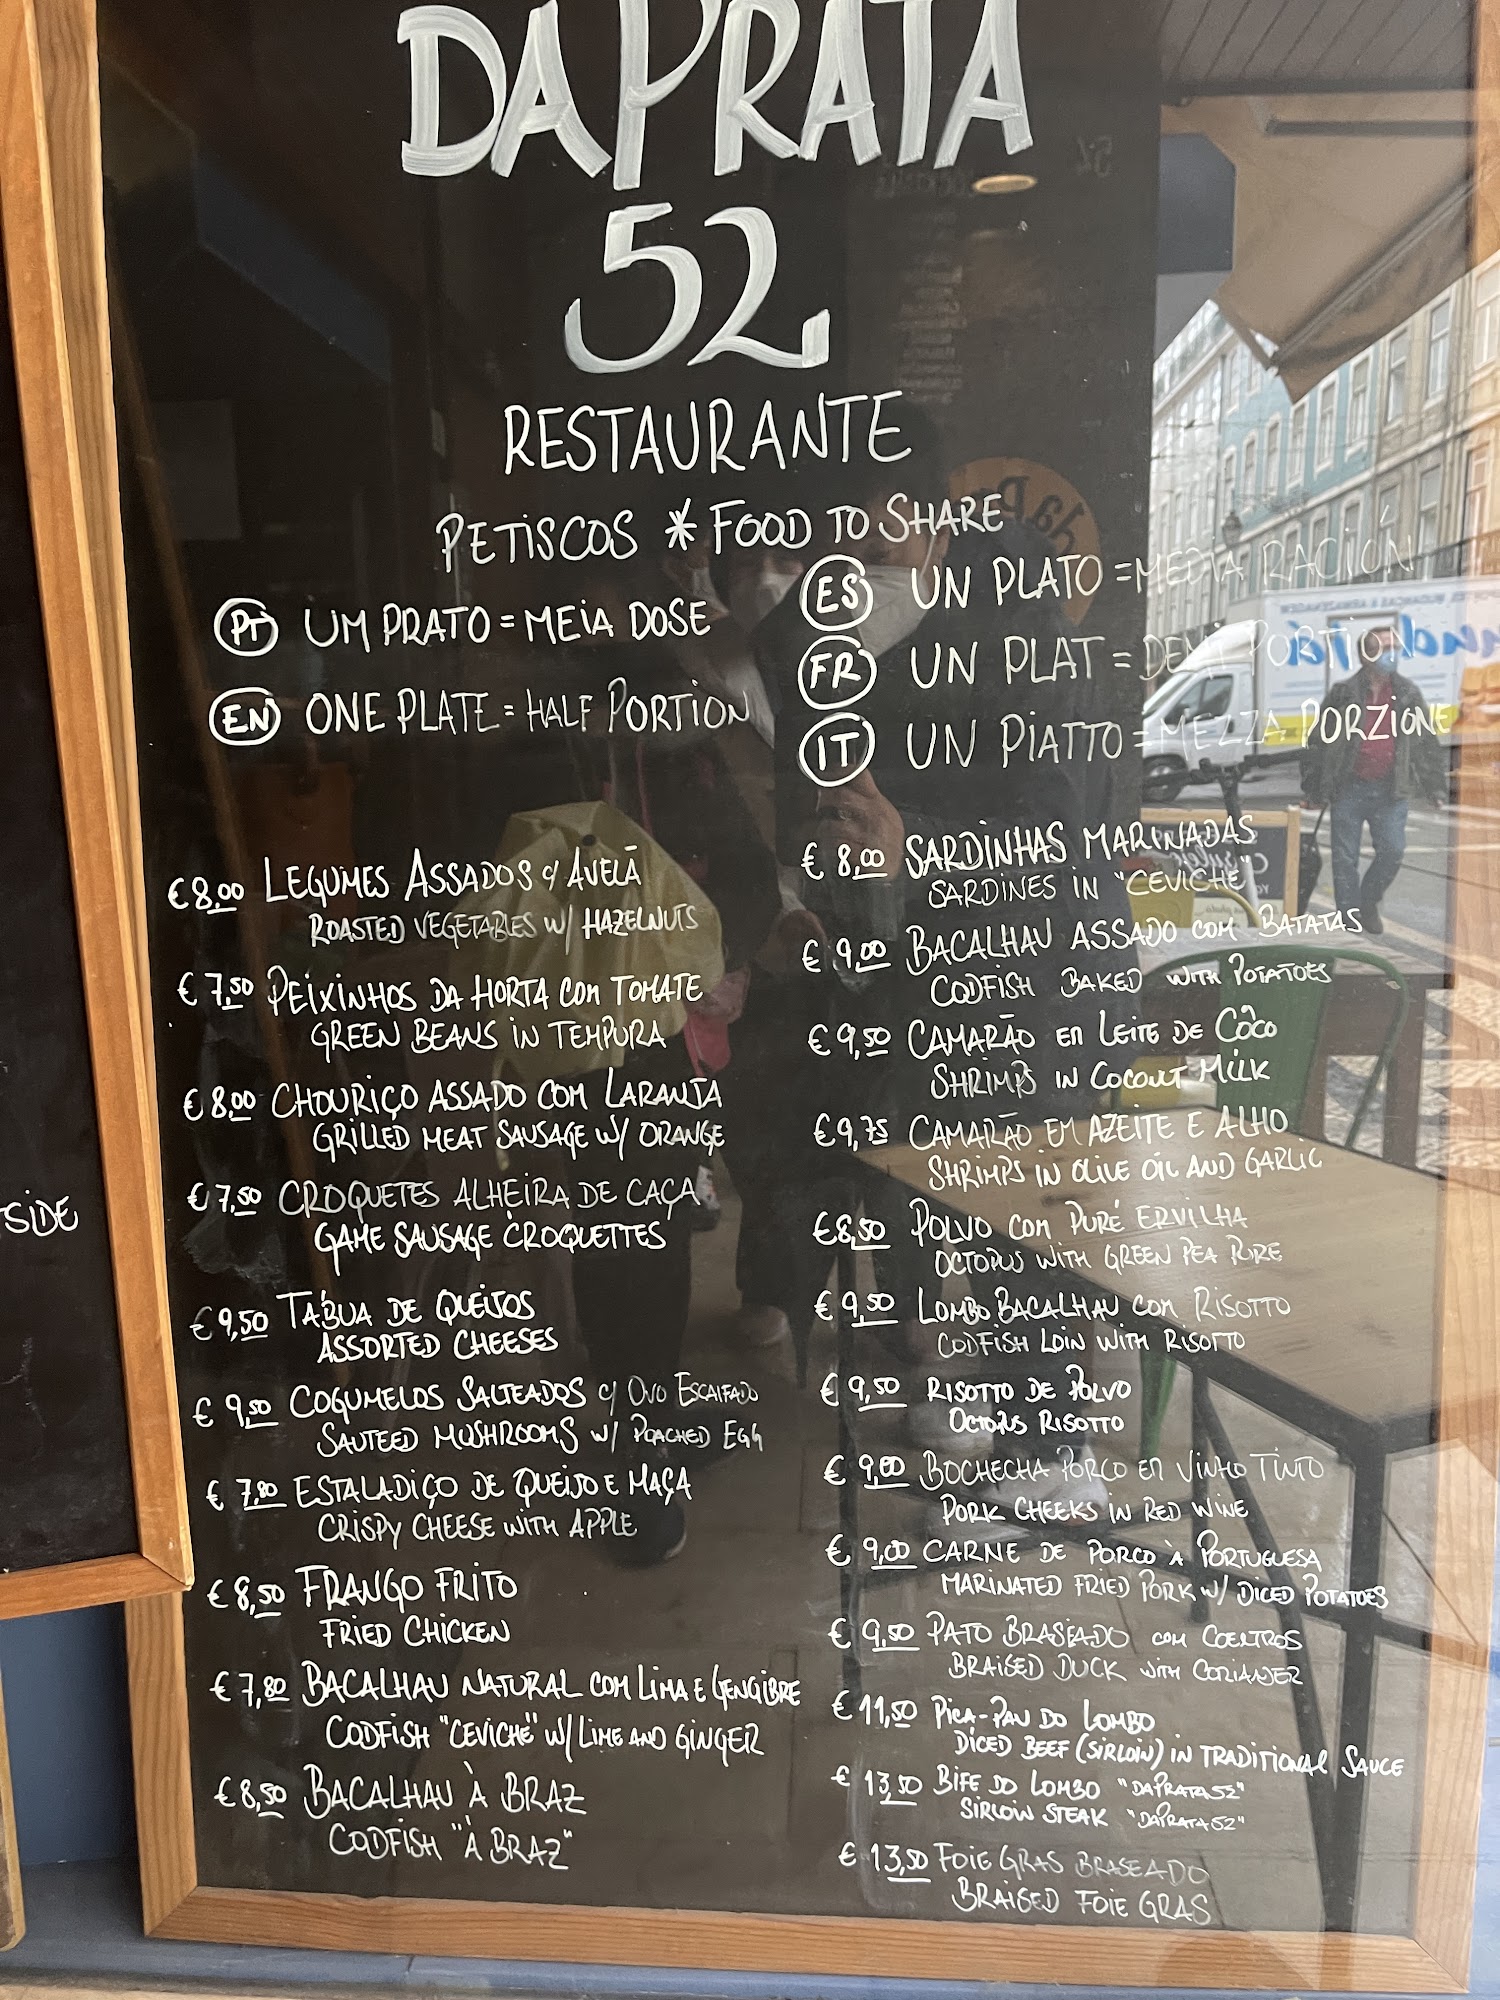 DAPRATA
52
RESTAURANTE
PETISCOS * FOOD TO SHARE
PT UM PRATO = MEIA DOSE
EN ONE PLATE = HALF PORTION
ES UN PLATO = MEDIA RACIÓN
FR UN PLAT = DEMI PORTION
IT UN PIATTO = MEZZA PORZIONE
€ 8,00 LEGUMES ASSADOS C/ AVELÃ
ROASTED VEGETABLES W/ HAZELNUTS
€ 7,50 PEIXINHOS DA HORTA COM TOMATE
GREEN BEANS IN TEMPURA
€ 8,00 CHOURIÇO ASSADO COM LARANJA
GRILLED MEAT SAUSAGE W/ ORANGE
€ 7,50 CROQUETES ALHEIRA DE CAÇA
GAME SAUSAGE CROQUETTES
€ 9,50 TÁBUA DE QUEIJOS
ASSORTED CHEESES
€ 9,50 COGUMELOS SALTEADOS C/ OVO ESCALFADO
SAUTEED MUSHROOMS W/ POACHED EGG
€ 7,80 ESTALADIÇO DE QUEIJO E MAÇA
CRISPY CHEESE WITH APPLE
€ 8,50 FRANGO FRITO
FRIED CHICKEN
€ 7,80 BACALHAU NATURAL COM LIMA E GENGIBRE
CODFISH "CEVICHE" W/ LIME AND GINGER
€ 8,50 BACALHAU À BRAZ
CODFISH "À BRAZ"
€ 8,00 SARDINHAS MARINADAS
SARDINES IN "CEVICHE"
€ 9,00 BACALHAU ASSADO COM BATATAS
CODFISH BAKED WITH POTATOES
€ 9,50 CAMARÃO EM LEITE DE CÔCO
SHRIMPS IN COCONUT MILK
€ 9,75 CAMARÃO EM AZEITE E ALHO
SHRIMPS IN OLIVE OIL AND GARLIC
€ 8,50 POLVO COM PURÉ ERVILHA
OCTOPUS WITH GREEN PEA PURE
€ 9,50 LOMBO BACALHAU COM RISOTTO
CODFISH LOIN WITH RISOTTO
€ 9,50 RISOTTO DE POLVO
OCTOPUS RISOTTO
€ 9,00 BOCHECHA PORCO EM VINHO TINTO
PORK CHEEKS IN RED WINE
€ 9,00 CARNE DE PORCO À PORTUGUESA
MARINATED FRIED PORK W/ DICED POTATOES
€ 9,50 PATO BRASEADO COM COENTROS
BRAISED DUCK WITH CORIANDER
€ 11,50 PICA-PAU DO LOMBO
DICED BEEF (SIRLOIN) IN TRADITIONAL SAUCE
€ 13,50 BIFE DO LOMBO "DAPRATA52"
SIRLOIN STEAK "DAPRATA52"
€ 13,50 FOIE GRAS BRASEADO
BRAISED FOIE GRAS
SIDE